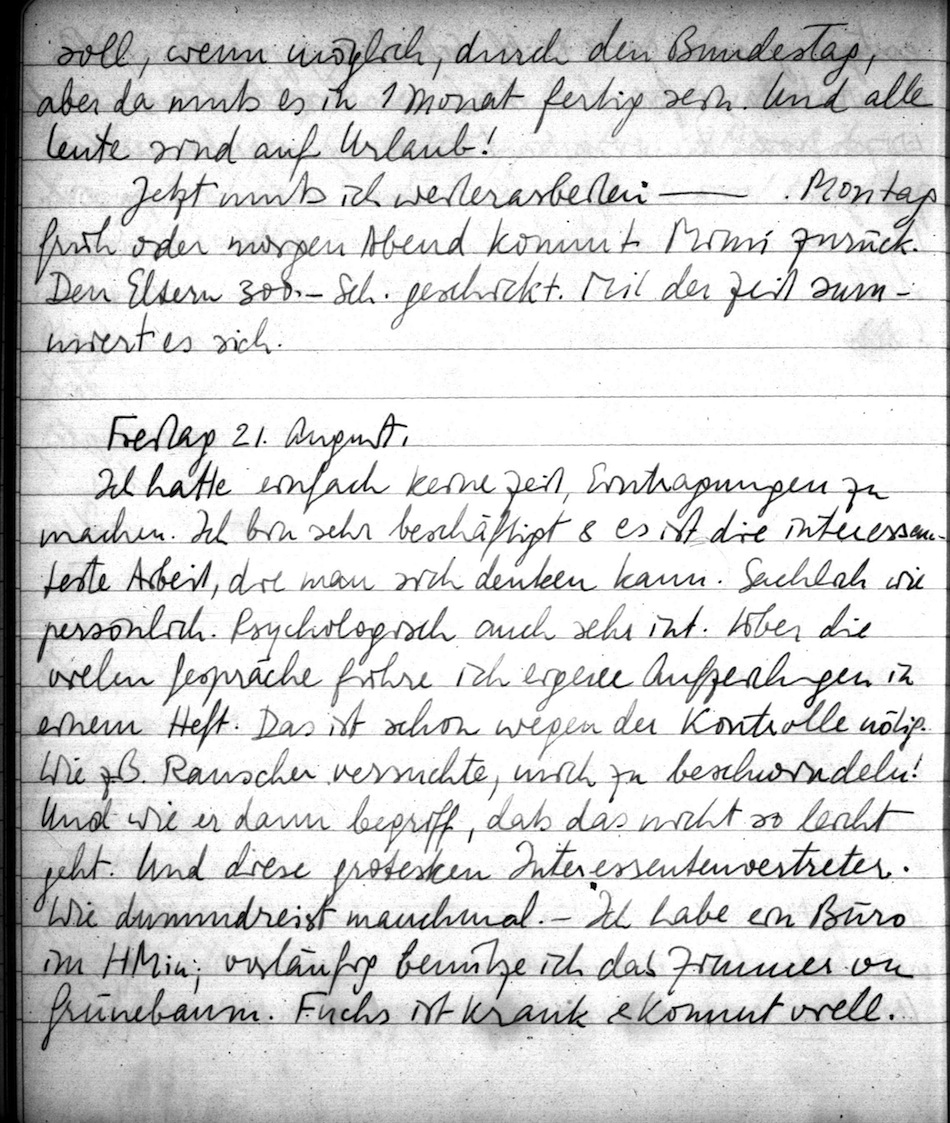 soll, wenn möglich, durch den Bundestag,
aber da muß es in 1 Monat fertig sein. Und alle
Leute sind auf Urlaub!
Jetzt muß ich weiterarbeiten —— . Montag
früh oder morgen Abend kommt Mimi zurück.
Den Eltern 300.– Sch. geschickt. Mit der Zeit sum-
miert es sich.
Freitag 21. August.
Ich hatte einfach keine Zeit, Eintragungen zu
machen. Ich bin sehr beschäftigt & es ist die interessan-
teste Arbeit, die man sich denken kann. Sachlich wie
persönlich. Psychologisch auch sehr int. Über die
vielen Gespräche führe ich eigene Aufzeichngen in
einem Heft. Das ist schon wegen der Kontrolle nötig.
Wie zB. Rauscher versuchte, mich zu beschwindeln!
Und wie er dann begriff, daß das nicht so leicht
geht. Und diese grotesken Interessentenvertreter.
Wie dummdreist manchmal. – Ich habe ein Büro
im HMin; vorläufig benütze ich das Zimmer von
Grünebaum. Fuchs ist krank & kommt viell.